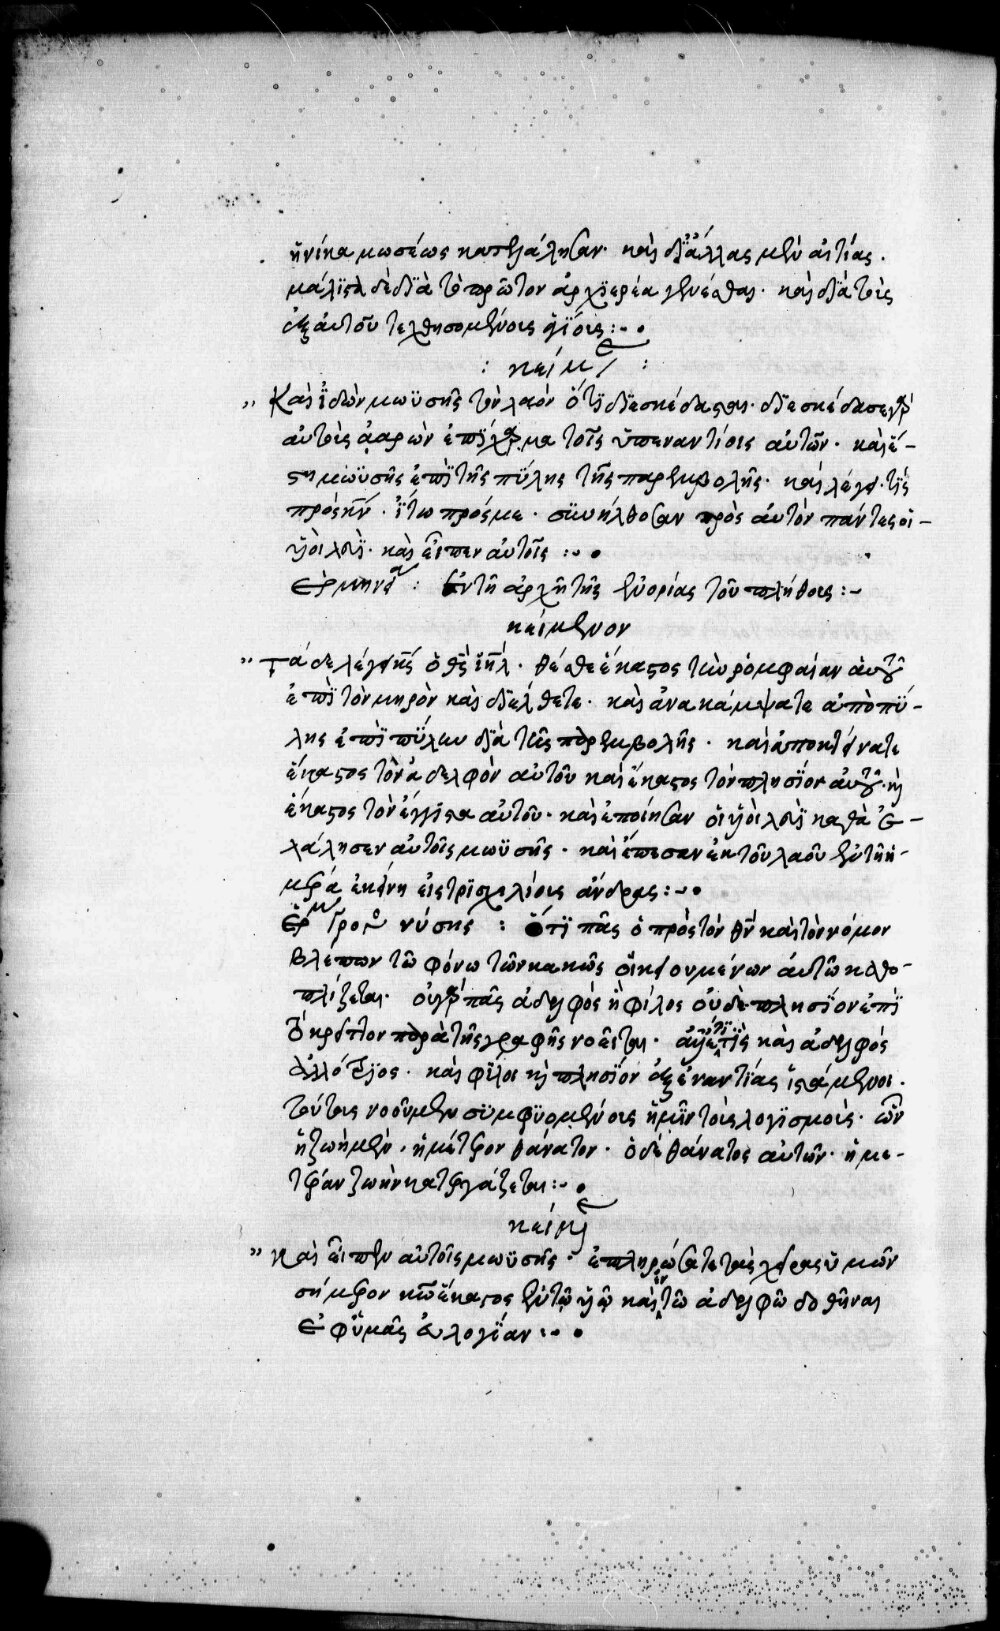 ἡνίκα μωσέως κατεξάλησαν· καὶ δϊ ἄλλας μὲν αἰτίας·
μάλϊστα δὲ δϊὰ τὸ πρῶτον ἀρχϊερέα γενέσθαι· καὶ δϊὰ τοὺς
ἐξ αὐτοῦ τεχθησομένους ϋἱούς :~ •
: κείμ :
,, Καὶ ἰδὼν μωϋσῆς τὸν λαὸν ὅτϊ δϊεσκέδασται· δϊεσκέδασε γὰρ
αὐτοὺς ἀαρὼν ἐπϊχαρμα τοῖς ὑπεναντίοις αὐτῶν· καὶ ἔ-
στη μωϋσῆς ἐπϊ τῆς πύλης τῆς παρεμβολῆς· καὶ λέγει· τίς
πρὸς κν̄· ἴτω πρός με· συνῆλθοσαν πρὸς αὐτὸν πάντες οἱ-
ϋἱοὶ λευΐ· καὶ εἶπεν αὐτοῖς :~ •
ἑρμηνεία : Ἐν τῆ ἀρχῆ τῆς ἐνορίας τοῦ πλήθους :~
κείμενον
,, Τάδε λέγει κς̄ ὁ θς̄ ιηλ̄· θέσθε ἕκαστος τὴν ρομφαίαν αὐτοῦ
ἐπϊ τὸν μηρὸν καὶ δϊέλθετε· καὶ ἀνακάμψατε ἀπὸ πύ-
λης ἐπϊ πύλην δϊὰ τῆς παρεμβολῆς· καὶ ἀποκτείνατε
ἕκαστος τὸν ἀδελφὸν αὐτοῦ καὶ ἕκαστος τὸν πλησίον αὐτοῦ· κὶ
ἕκαστος τὸν ἔγγιστα αὐτοῦ· καὶ ἐποίησαν οἱ ϋἱοὶ λευΐ καθὰ ἐ-
λάλησεν αὐτοῖς μωϋσῆς· καὶ ἔπεσαν ἐκ τοῦ λαοῦ ἐν τῆ ἡ-
μέρα ἐκείνη εἰς τρϊσχιλίους ἄνδρας :~ •
ἑρμ Γρο νύσης : ὅτϊ πᾶς ὁ πρὸς τὸν θν̄ καὶ τὸν νόμον
βλέπων τῶ φόνω τῶν κακῶς οἰκειουμένων αὐτῶ καθο-
πλίζεται· οὐ γὰρ πᾶς ἀδελφὸς ἢ φίλος οὐδὲ πλησϊον ἐπϊ
τὸ κρεῖττον παρὰ τῆς γραφῆς νοεῖται· ἀλλ' ἔστϊ τὶς καὶ ἀδελφὸς
ἀλλότριος· καὶ φίλοι κὶ πλησϊον ἐξ ἐναντίας ἱστάμενοι·
τούτους νοοῦμεν συμφυομένους ἡμῖν τοὺς λογισμούς· ὧν
ἡ ζωὴ μὲν, ἡμέτερον θάνατον· ὁ δὲ θάνατος αὐτῶν· ἡμε-
τέραν ζωὴν κατεργάζεται :~ •
κείμ
,, Καὶ εἶπεν αὐτοῖς μωϋσῆς· ἐπληρώσατε τὰς χεῖρας ὑμῶν
σήμερον κω̄ ἕκαστος ἐν τῶ ϋἱῶ καὶ ἐν τῶ ἀδελφῶ δοθῆναι
ἐφ' ὑμᾶς εὐλογίαν :~ •